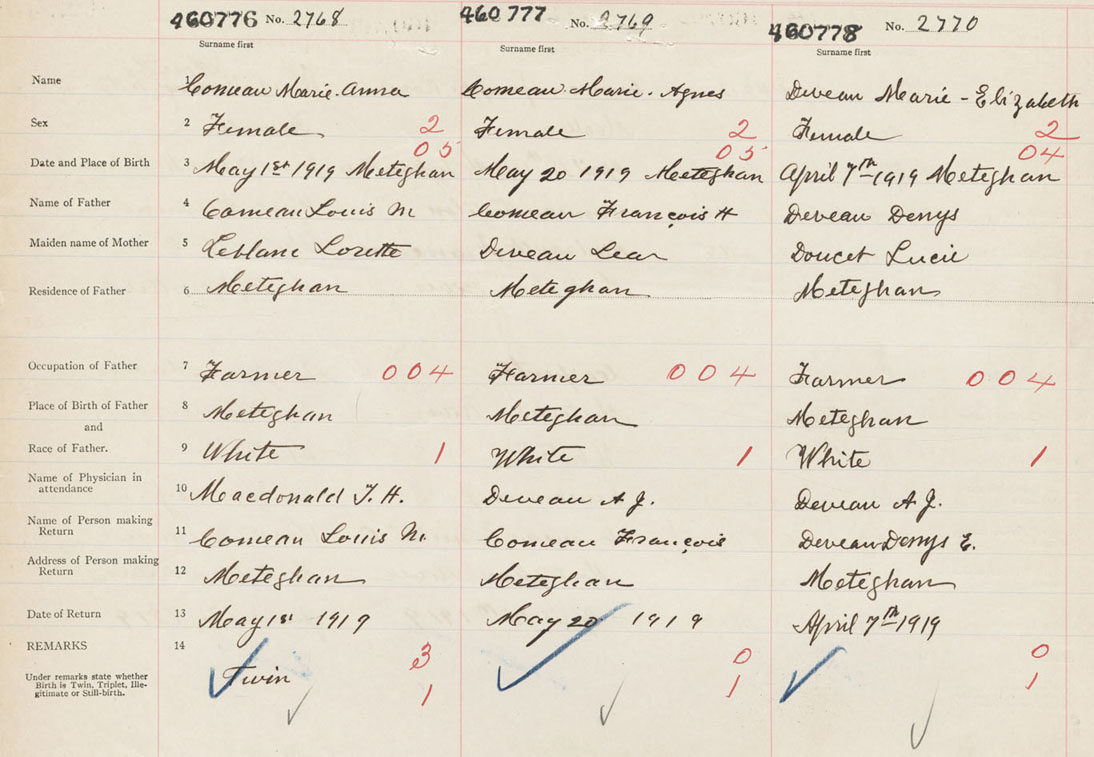 460776 No. 2768 460777 No. 2769 460778 No. 2770
Surname first Surname first Surname first
Name 1 Comeau Marie-Anna Comeau Marie-Agnes Deveau Marie-Elizabeth
Sex 2 Female 2 Female 2 Female 2
05 05 04
Date and Place of Birth 3 May 1st 1919 Meteghan May 20 1919 Meteghan April 7th 1919 Meteghan
Name of Father 4 Comeau Louis M Comeau François H Deveau Denys
Maiden name of Mother 5 Leblanc Lorette Deveau Lea Doucet Lucie
Residence of Father 6 Meteghan Meteghan Meteghan
Occupation of Father 7 Farmer 004 Farmer 004 Farmer 004
Place of Birth of Father 8 Meteghan Meteghan Meteghan
and
Race of Father. 9 White 1 White 1 White 1
Name of Physician in
attendance 10 Macdonald T. H. Deveau A J. Deveau A J.
Name of Person making
Return 11 Comeau Louis M. Comeau François Deveau Denys E.
Address of Person making
Return 12 Meteghan Meteghan Meteghan
Date of Return 13 May 1st 1919 May 20 1919 April 7th 1919
REMARKS 14 3 0 0
Under remarks state whether
Birth is Twin, Triplet, Ille-
gitimate or Still-birth. Twin 1 1 1